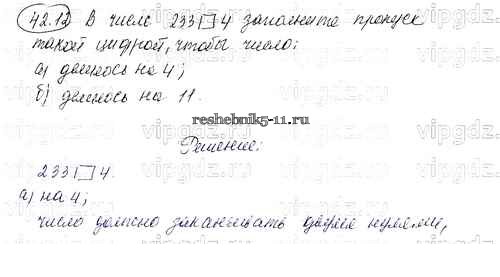 42.12 В числе 233□4 заполните пропуск
такой цифрой, чтобы число:
а) делилось на 4;
б) делилось на 11.
reshebnik5-11.ru
Решение:
233□4.
а) на 4;
число должно заканчивать двумя нулями,